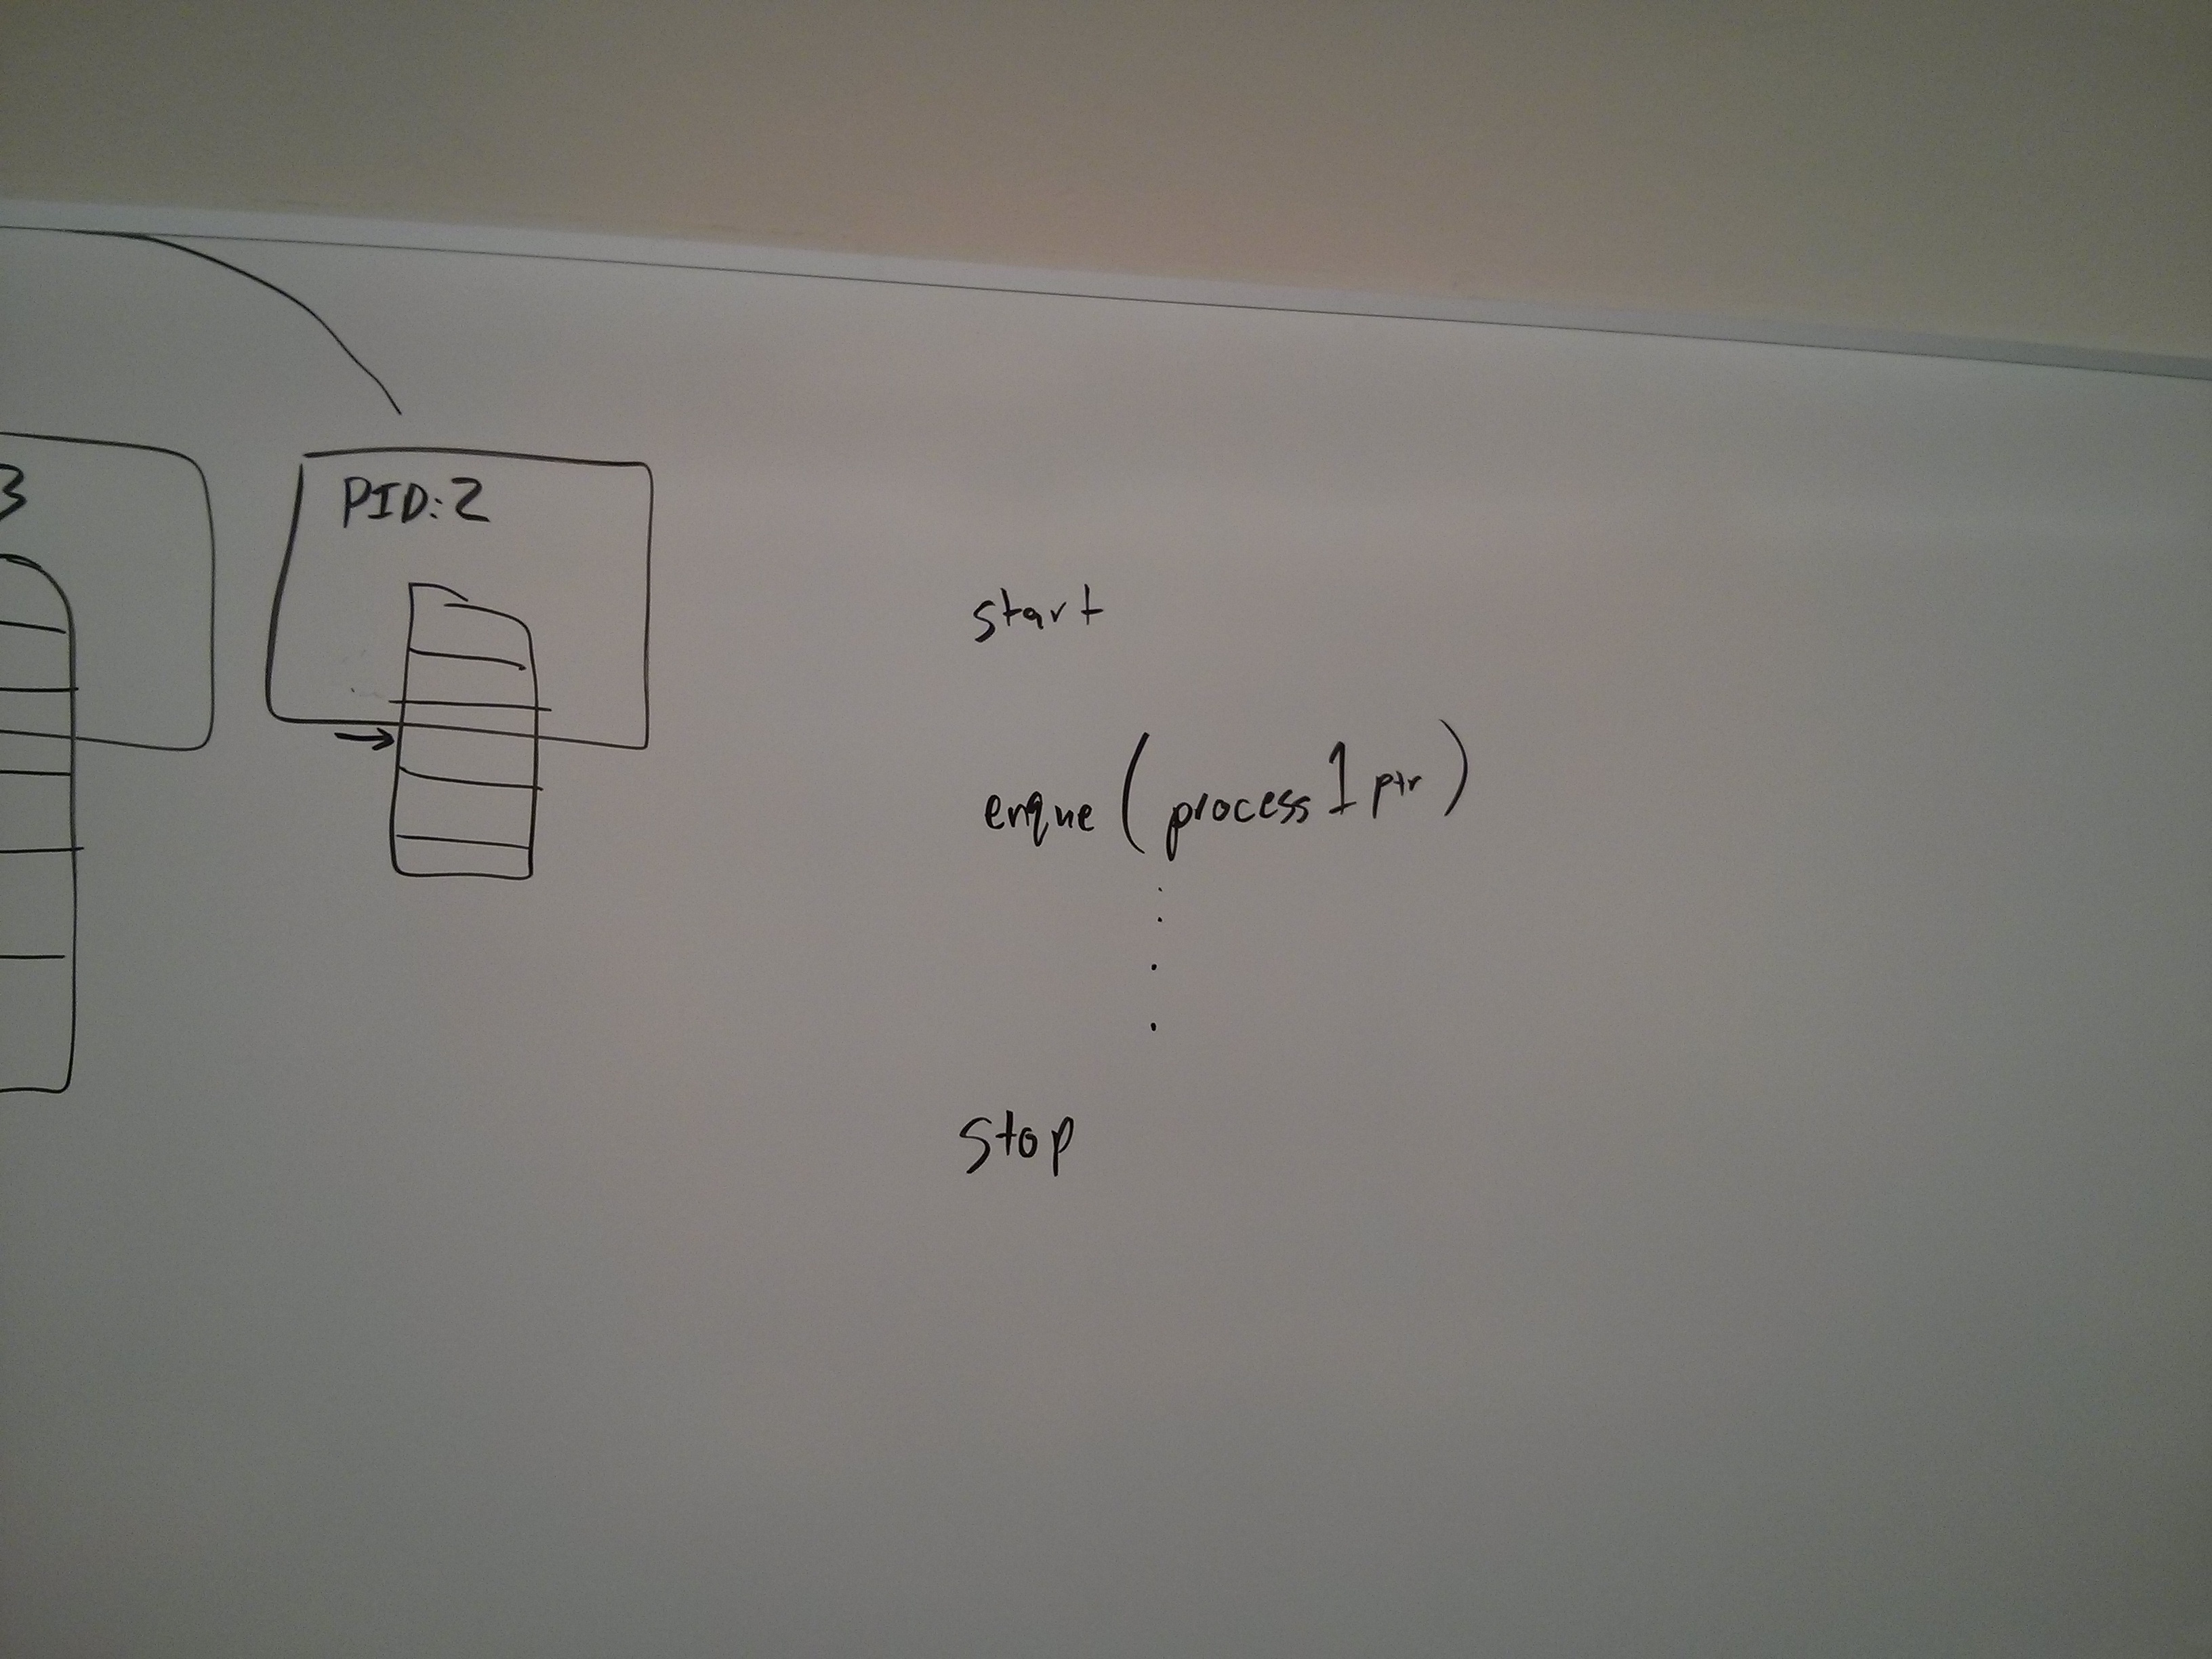 3
PID:2
start
enque (process1 ptr)
stop